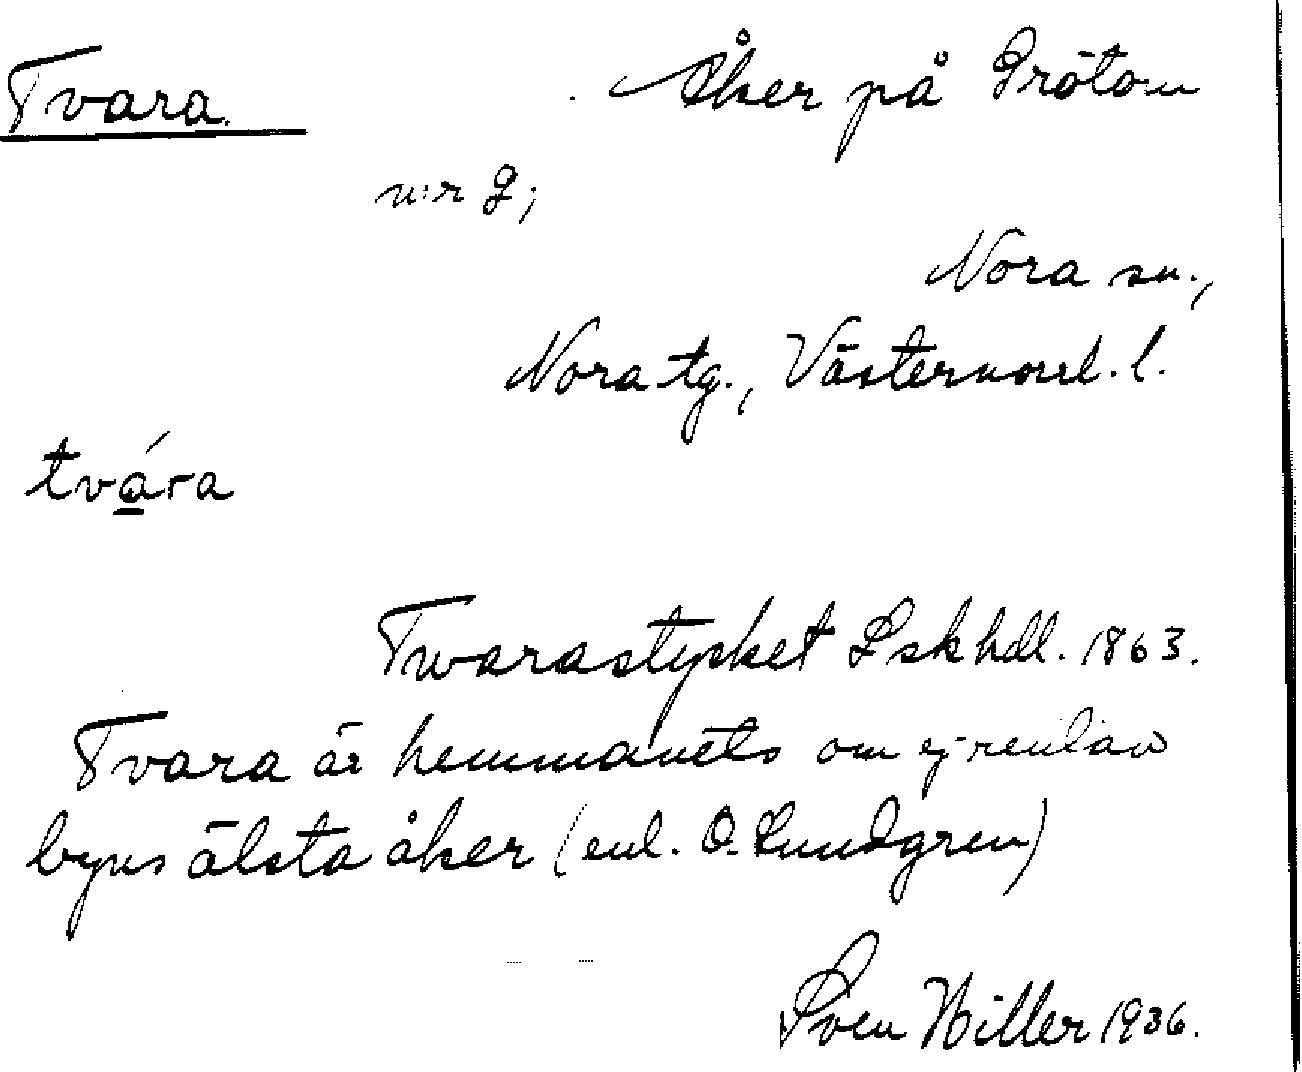 Tvara. Åker på Grötom
n:r 2;
Nora sn.,
Nora tg., Västernorrl. l.
tvára
Twarastycket Lskhdl. 1863.
Tvara är hemmanets om ej rentav
byns älsta åker (enl. O. Lundgren)
Sven Hiller 1936.